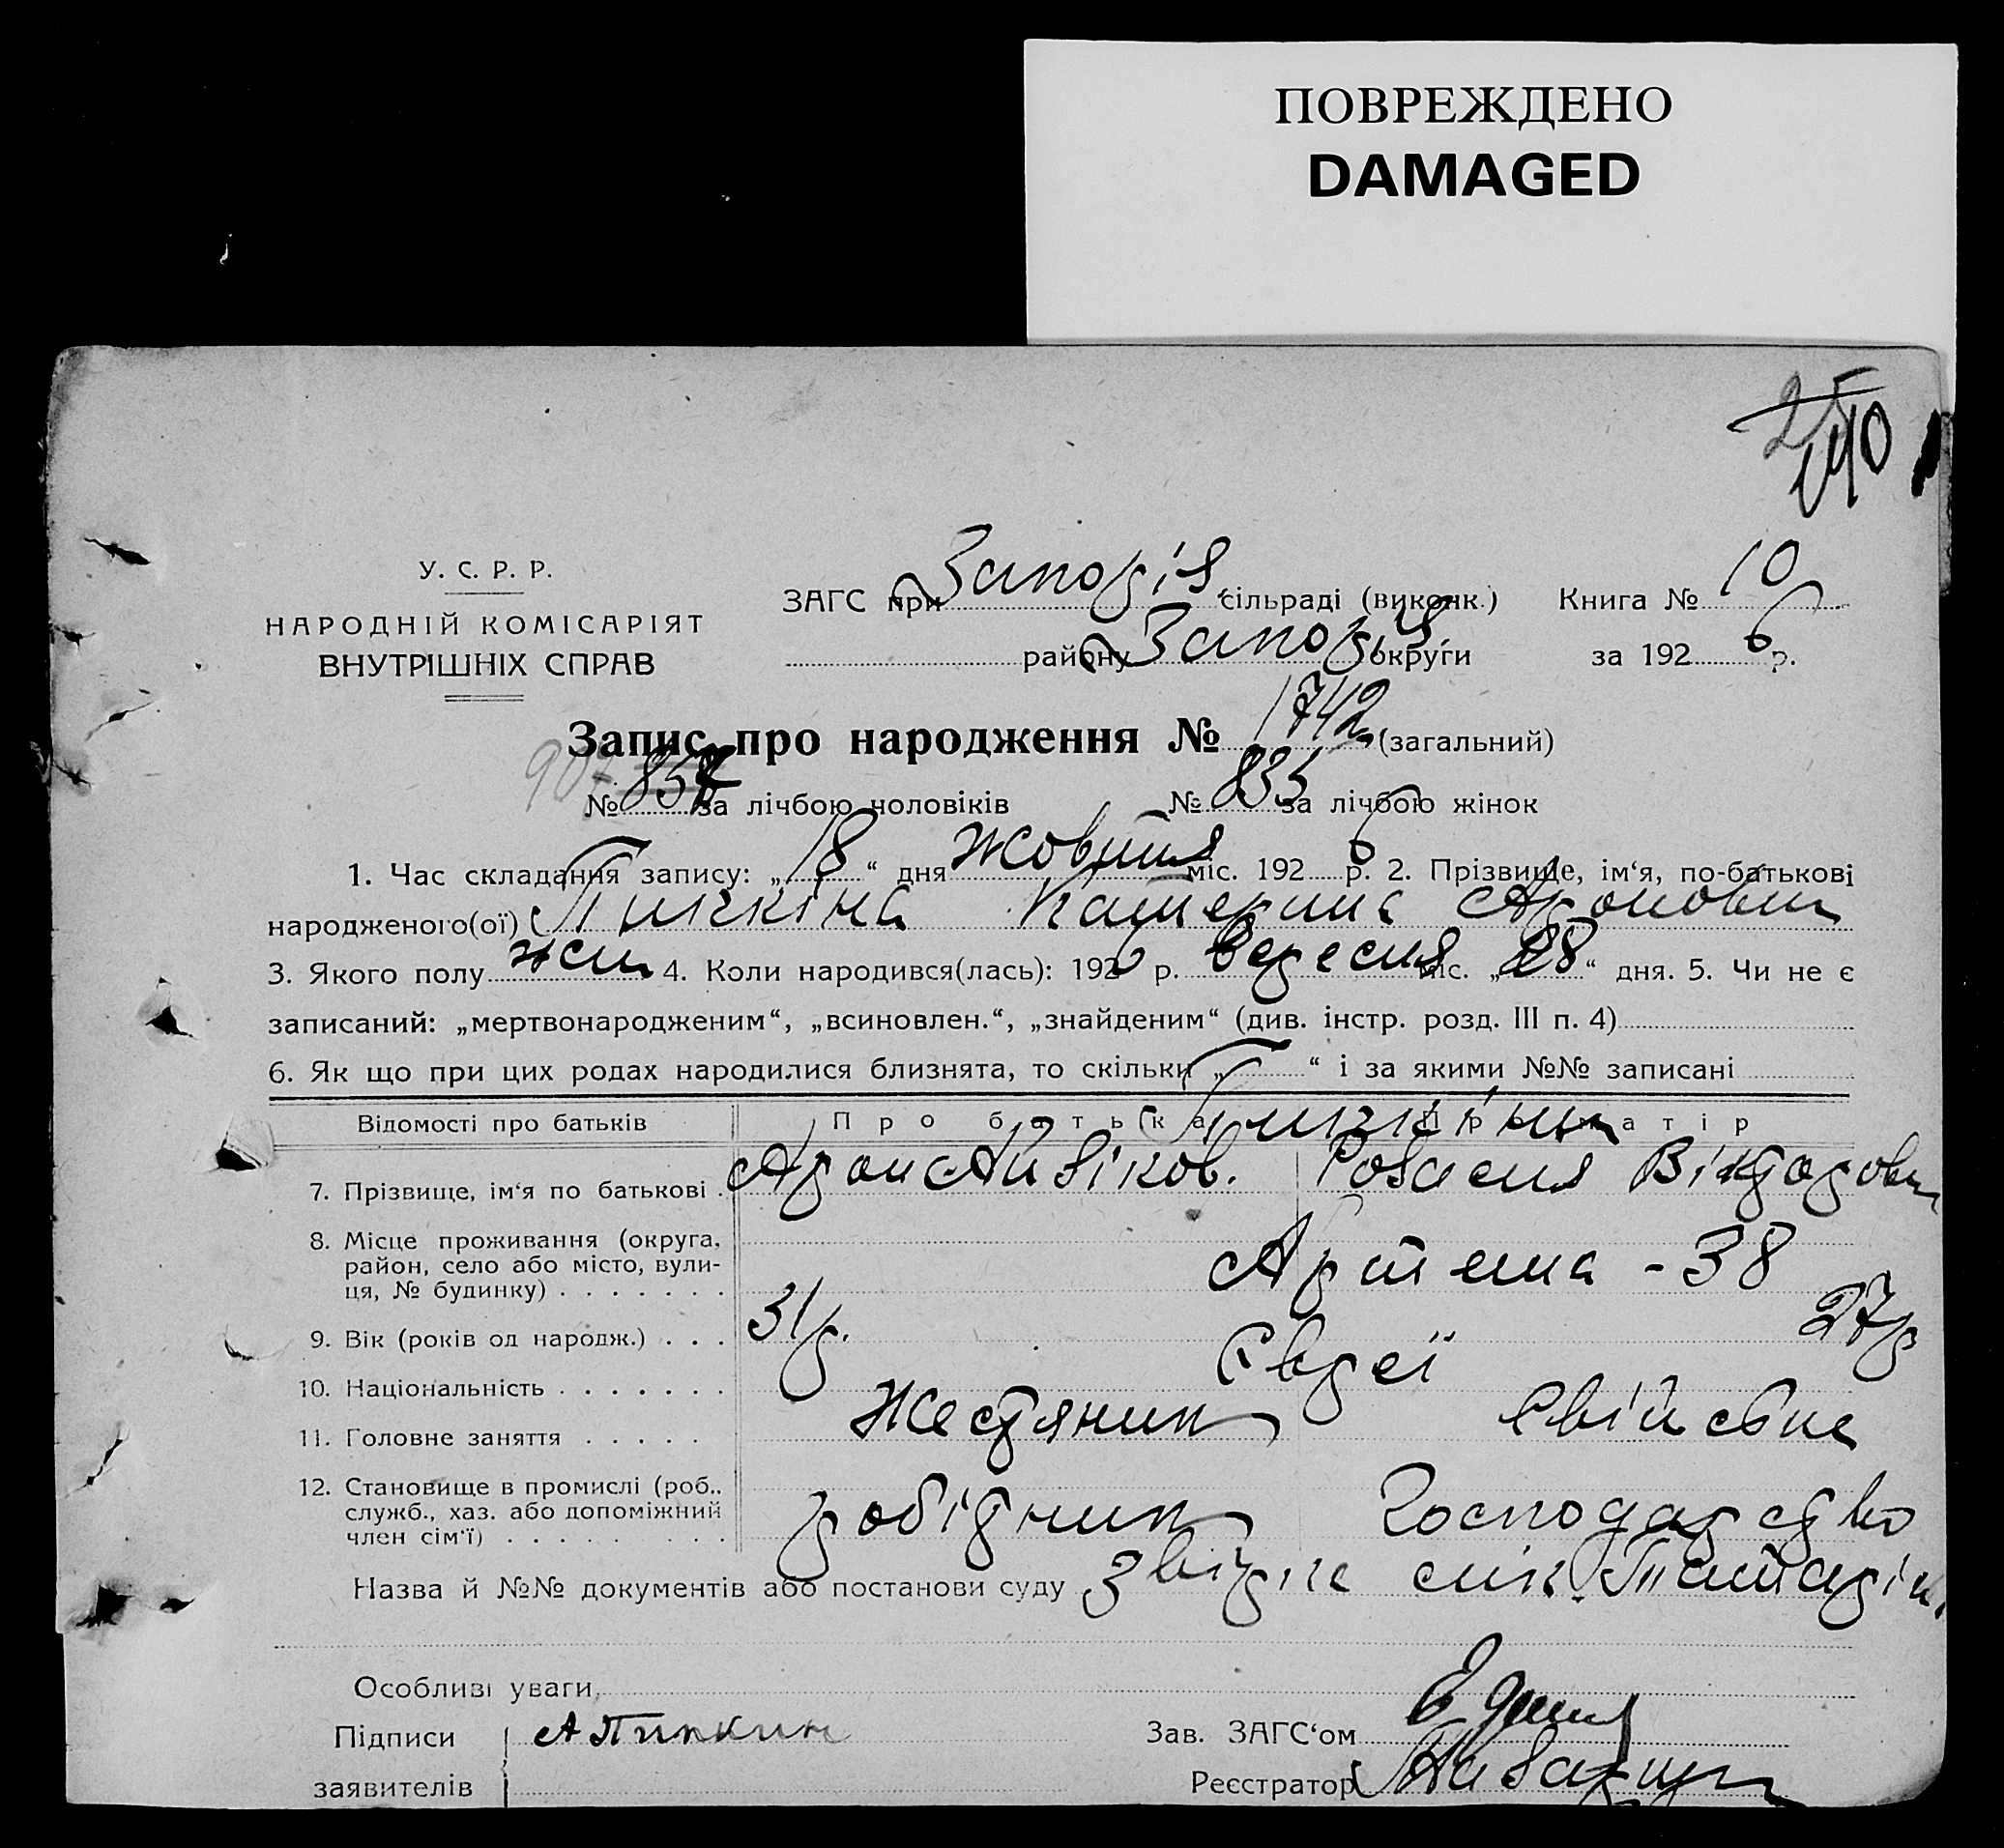 ПОВРЕЖДЕНО
DAMAGED
25
440
У. С. Р. Р.
НАРОДНІЙ КОМІСАРІЯТ
ВНУТРІШНІХ СПРАВ
ЗАГС при Запоріз. сільраді (виконк.) Книга № 10
району Запоріз. округи за 1926 р.
Запис про народження № 1742 (загальний)
907
№ 857 за лічбою чоловіків № 835 за лічбою жінок
1. Час складання запису: „18“ дня жовтня міс. 1926 р. 2. Прізвище, ім‘я, по-батькові
народженого(ої) Пипкіна Катерина Ароновна
3. Якого полу жен 4. Коли народився(лась): 1926 р. вересня міс. „28“ дня. 5. Чи не є
записаний: „мертвонародженим“, „всиновлен.“, „знайденим“ (див. інстр. розд. III п. 4)
6. Як що при цих родах народилися близнята, то скільки „ “ і за якими №№ записані
Відомості про батьків Про батька Про матір
Пипкіни
7. Прізвище, ім‘я по батькові Арон Айзіков. Розалия Вікторовн
8. Місце проживання (округа, район, село або місто, вули-ця, № будинку) Артема - 38
9. Вік (років од народж.) 31 р. 27 р
10. Національність Євреї
11. Головне заняття Жестяник Свійське
12. Становище в промислі (роб., служб., хаз. або допоміжний член сім‘ї) робітник Господарство
Назва й №№ документів або постанови суду
Особливі уваги
Підписи А Пипкин Зав. ЗАГС‘ом
заявителів Реєстратор